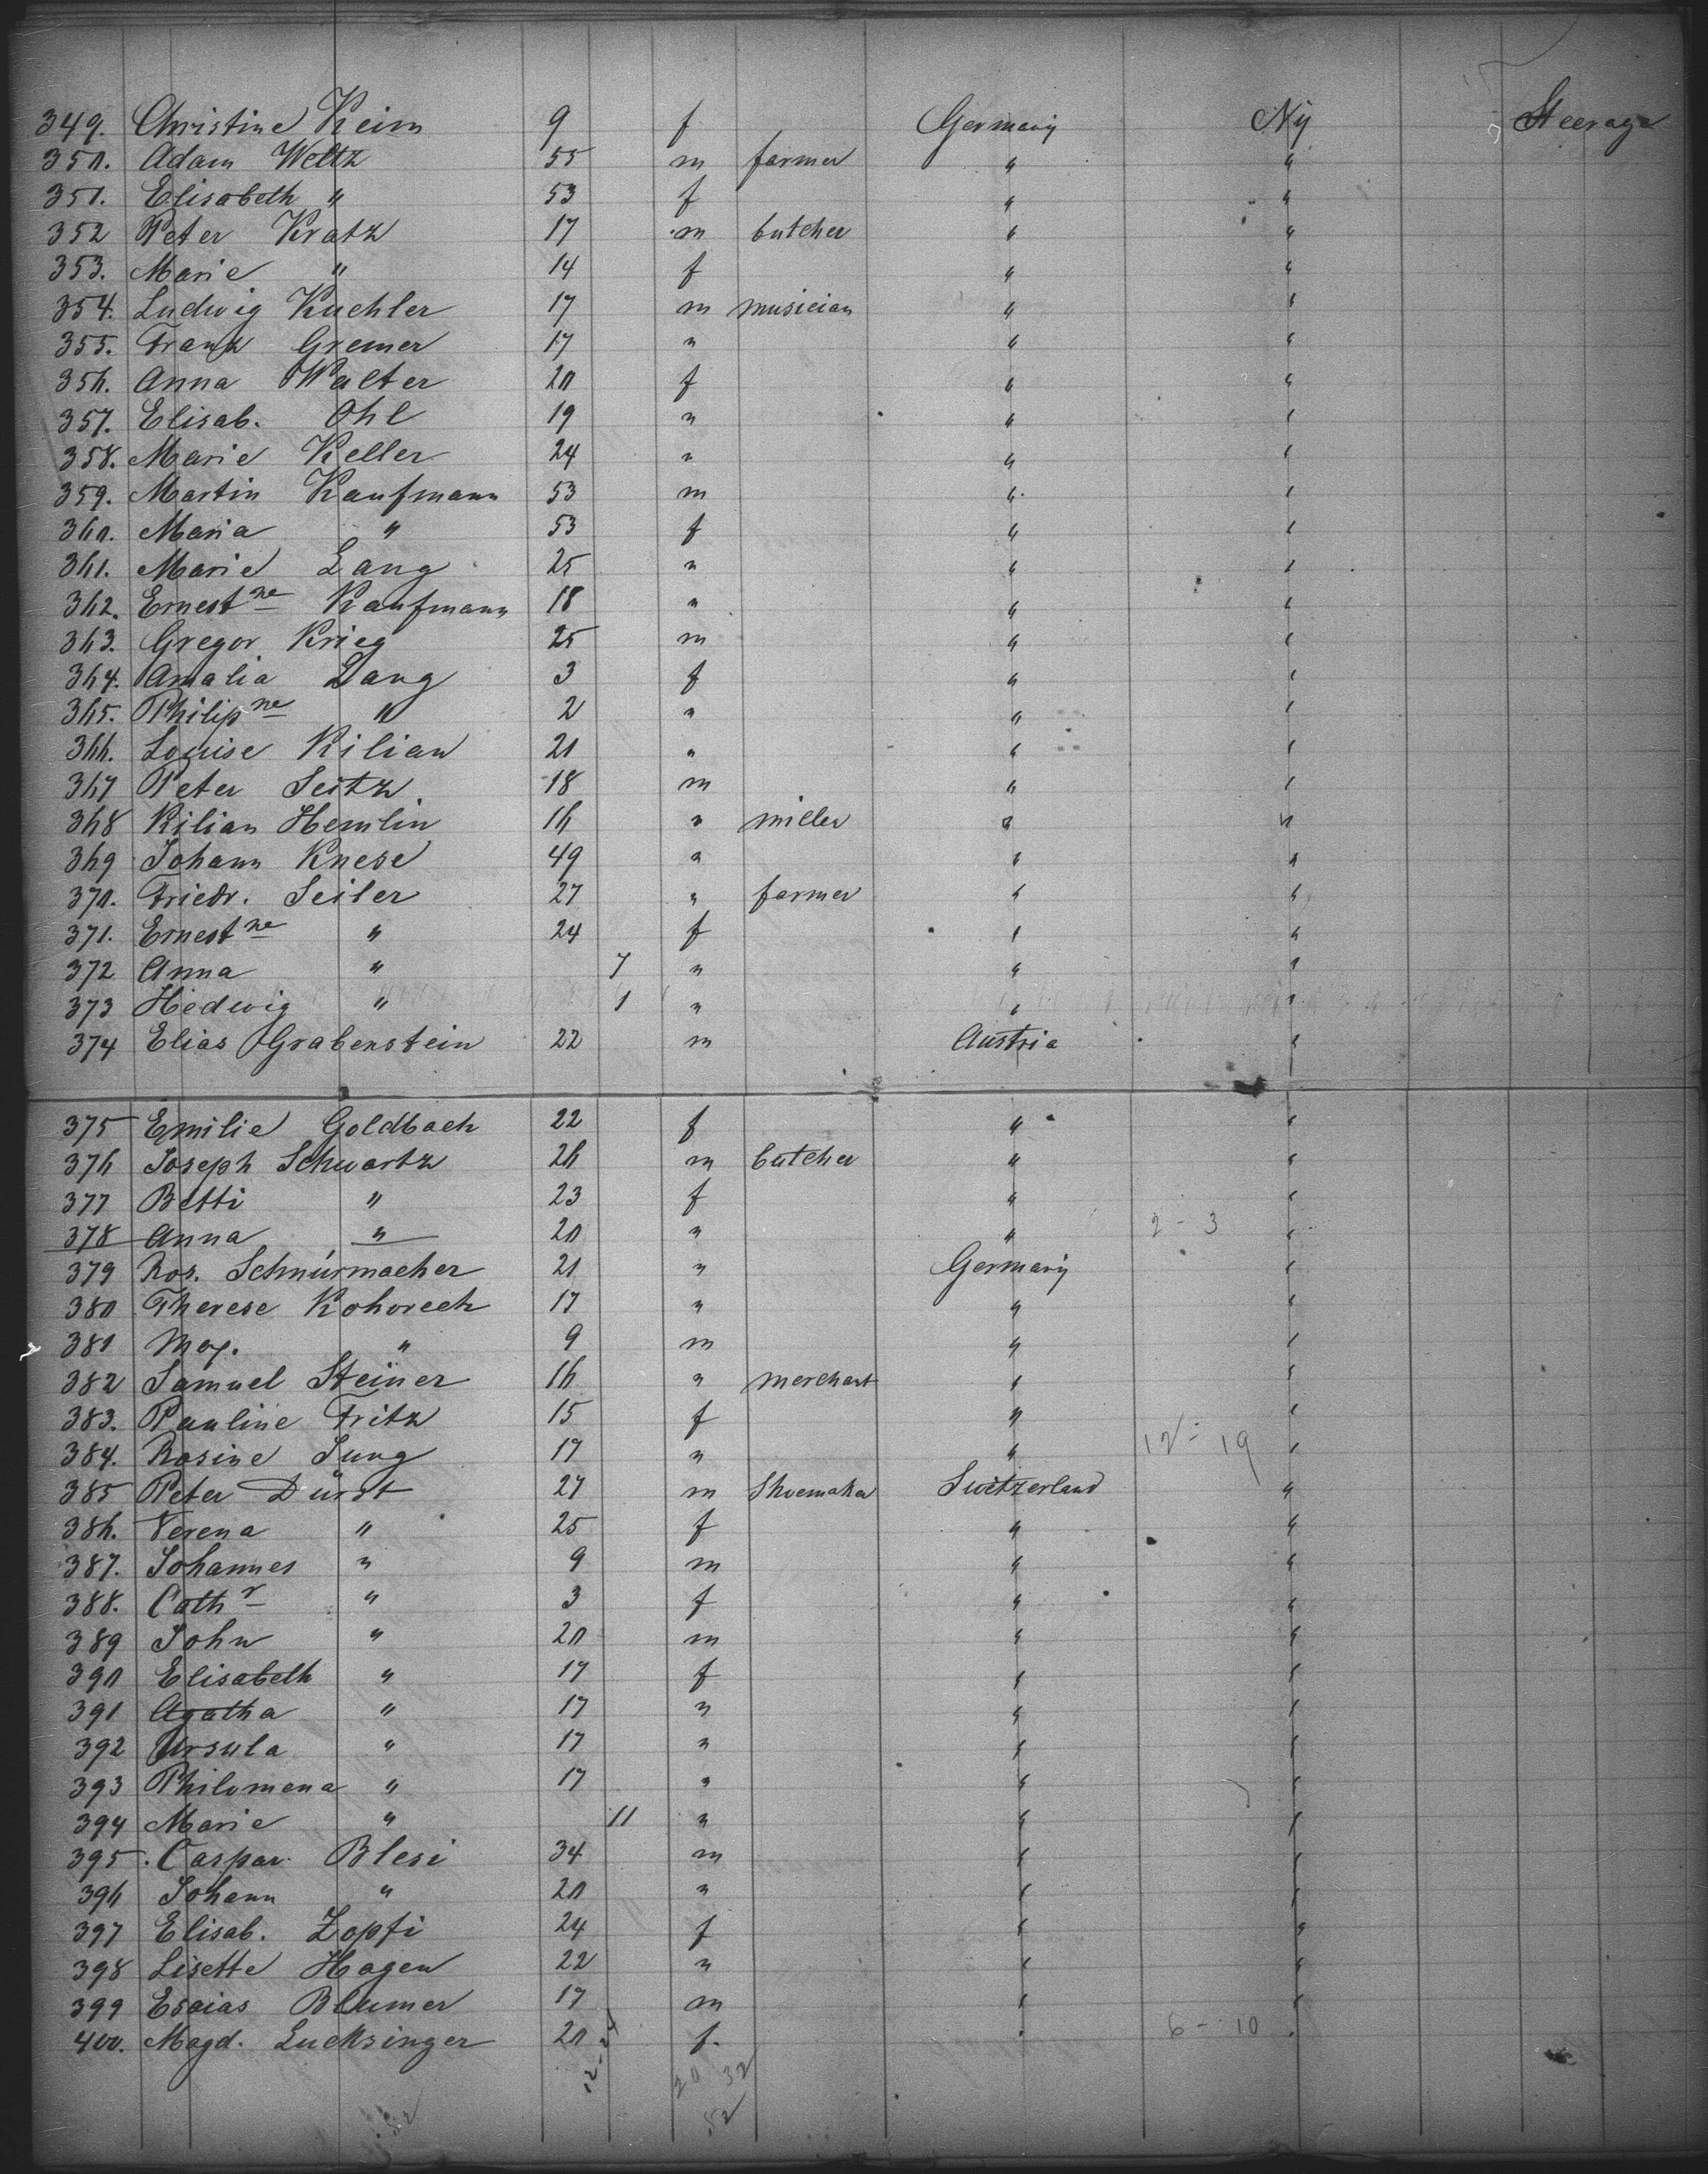 349. Christine Keim 9 f Germany Ny Steerage
350. Adam Weltz 55 m farmer " "
351. Elisabeth " 53 f " "
352 Peter Kratz 17 m butcher " "
353. Marie " 14 f " "
354. Ludwig Kuchler 17 m musician " "
355. Franz Gremer 17 " " "
356. Anna Walter 20 f " "
357. Elisab. Ohl 19 " " "
358. Marie Keller 24 " " "
359. Martin Kaufmann 53 m " "
360. Maria " 53 f " "
361. Marie Lang 25 " " "
362. Ernestne Kaufmann 18 " " "
363. Gregor Krieg 25 m " "
364. Amalia Lang 3 f " "
365. Philipne " 2 " " "
366. Louise Kilian 20 " " "
367 Peter Seitz 18 m " "
368 Kilian Hemlin 16 " miller " "
369 Johann Knese 49 " " "
370. Friedr. Seiler 27 " farmer " "
371. Ernestne " 24 f " "
372 Anna " 7 " " "
373 Hedwig " 1 " " "
374 Elias Grabenstein 22 m Austria "
375 Emilie Goldbach 22 f " "
376 Joseph Schwartz 26 m butcher " "
377 Betti " 23 f " "
378 Anna " 20 " " 2 - 3 "
379 Ros. Schnurmacher 21 " Germany "
380 Therese Kohorech 17 " " "
381 Max. " 9 m " "
382 Samuel Steiner 16 " merchant " "
383. Pauline Fritz 15 f " "
384. Rosine Jung 17 " " 12 - 19 "
385 Peter Dürst 27 m Shoemaker Switzerland "
386. Verena " 25 f " "
387. Johannes " 9 m " "
388. Cathr " 3 f " "
389 John " 20 m " "
390 Elisabeth " 17 f " "
391 Agatha " 17 " " "
392 Ursula " 17 " " "
393 Philomena " 17 " " "
394 Marie " 11 " " "
395. Caspar Blesi 34 m " "
396 Johann " 20 " " "
397 Elisab. Zopfi 24 f " "
398 Lisette Hagen 22 " " "
399 Esaias Blumer 17 m " "
400. Magd. Lucksinger 20 f. " 6 - 10 "
20 32
52